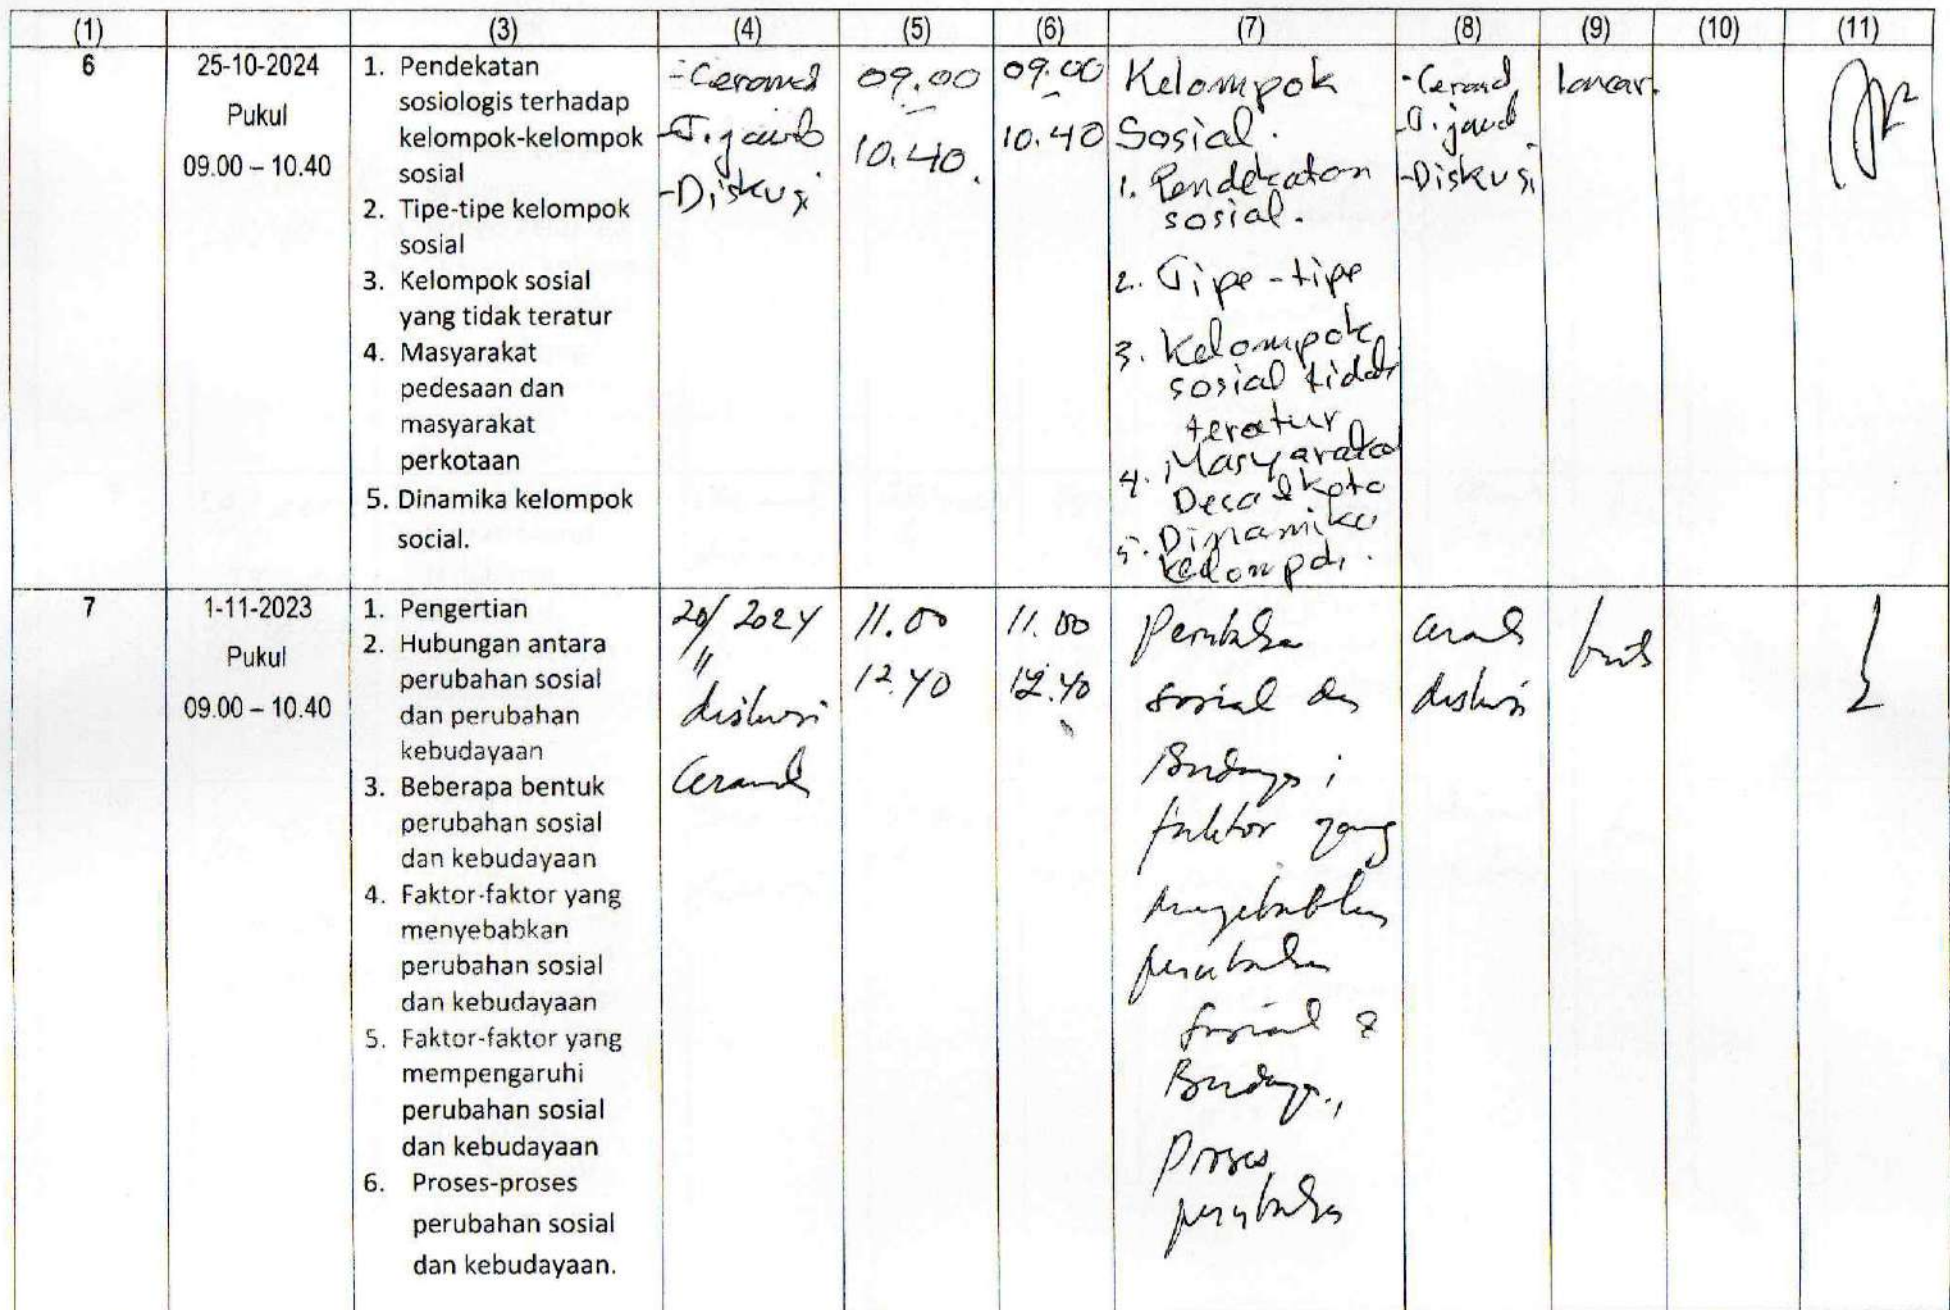 (1) (2) (3) (4) (5) (6) (7) (8) (9) (10) (11)
6
25-10-2024
Pukul
09.00 – 10.40
1. Pendekatan
sosiologis terhadap
kelompok-kelompok
sosial
2. Tipe-tipe kelompok
sosial
3. Kelompok sosial
yang tidak teratur
4. Masyarakat
pedesaan dan
masyarakat
perkotaan
5. Dinamika kelompok
social.
-T.jawab
-Diskusi
09.00
-
10.40.
09.00
-
10.40
Kelompok
Sosial.
1. Pendekatan
sosial.
2. Tipe-tipe
3. Kelompok
sosial tidak
teratur
4. Masyarakat
Desa & kota
5. Dinamika
-Diskusi
lancar.
7
1-11-2023
Pukul
09.00 – 10.40
1. Pengertian
2. Hubungan antara
perubahan sosial
dan perubahan
kebudayaan
3. Beberapa bentuk
perubahan sosial
dan kebudayaan
4. Faktor-faktor yang
menyebabkan
perubahan sosial
dan kebudayaan
5. Faktor-faktor yang
mempengaruhi
perubahan sosial
dan kebudayaan
6. Proses-proses
perubahan sosial
dan kebudayaan.
diskusi
11.00
12.40
11.00
12.40
sosial
Budaya;
faktor yang
sosial &
Budaya.,
Proses
diskusi